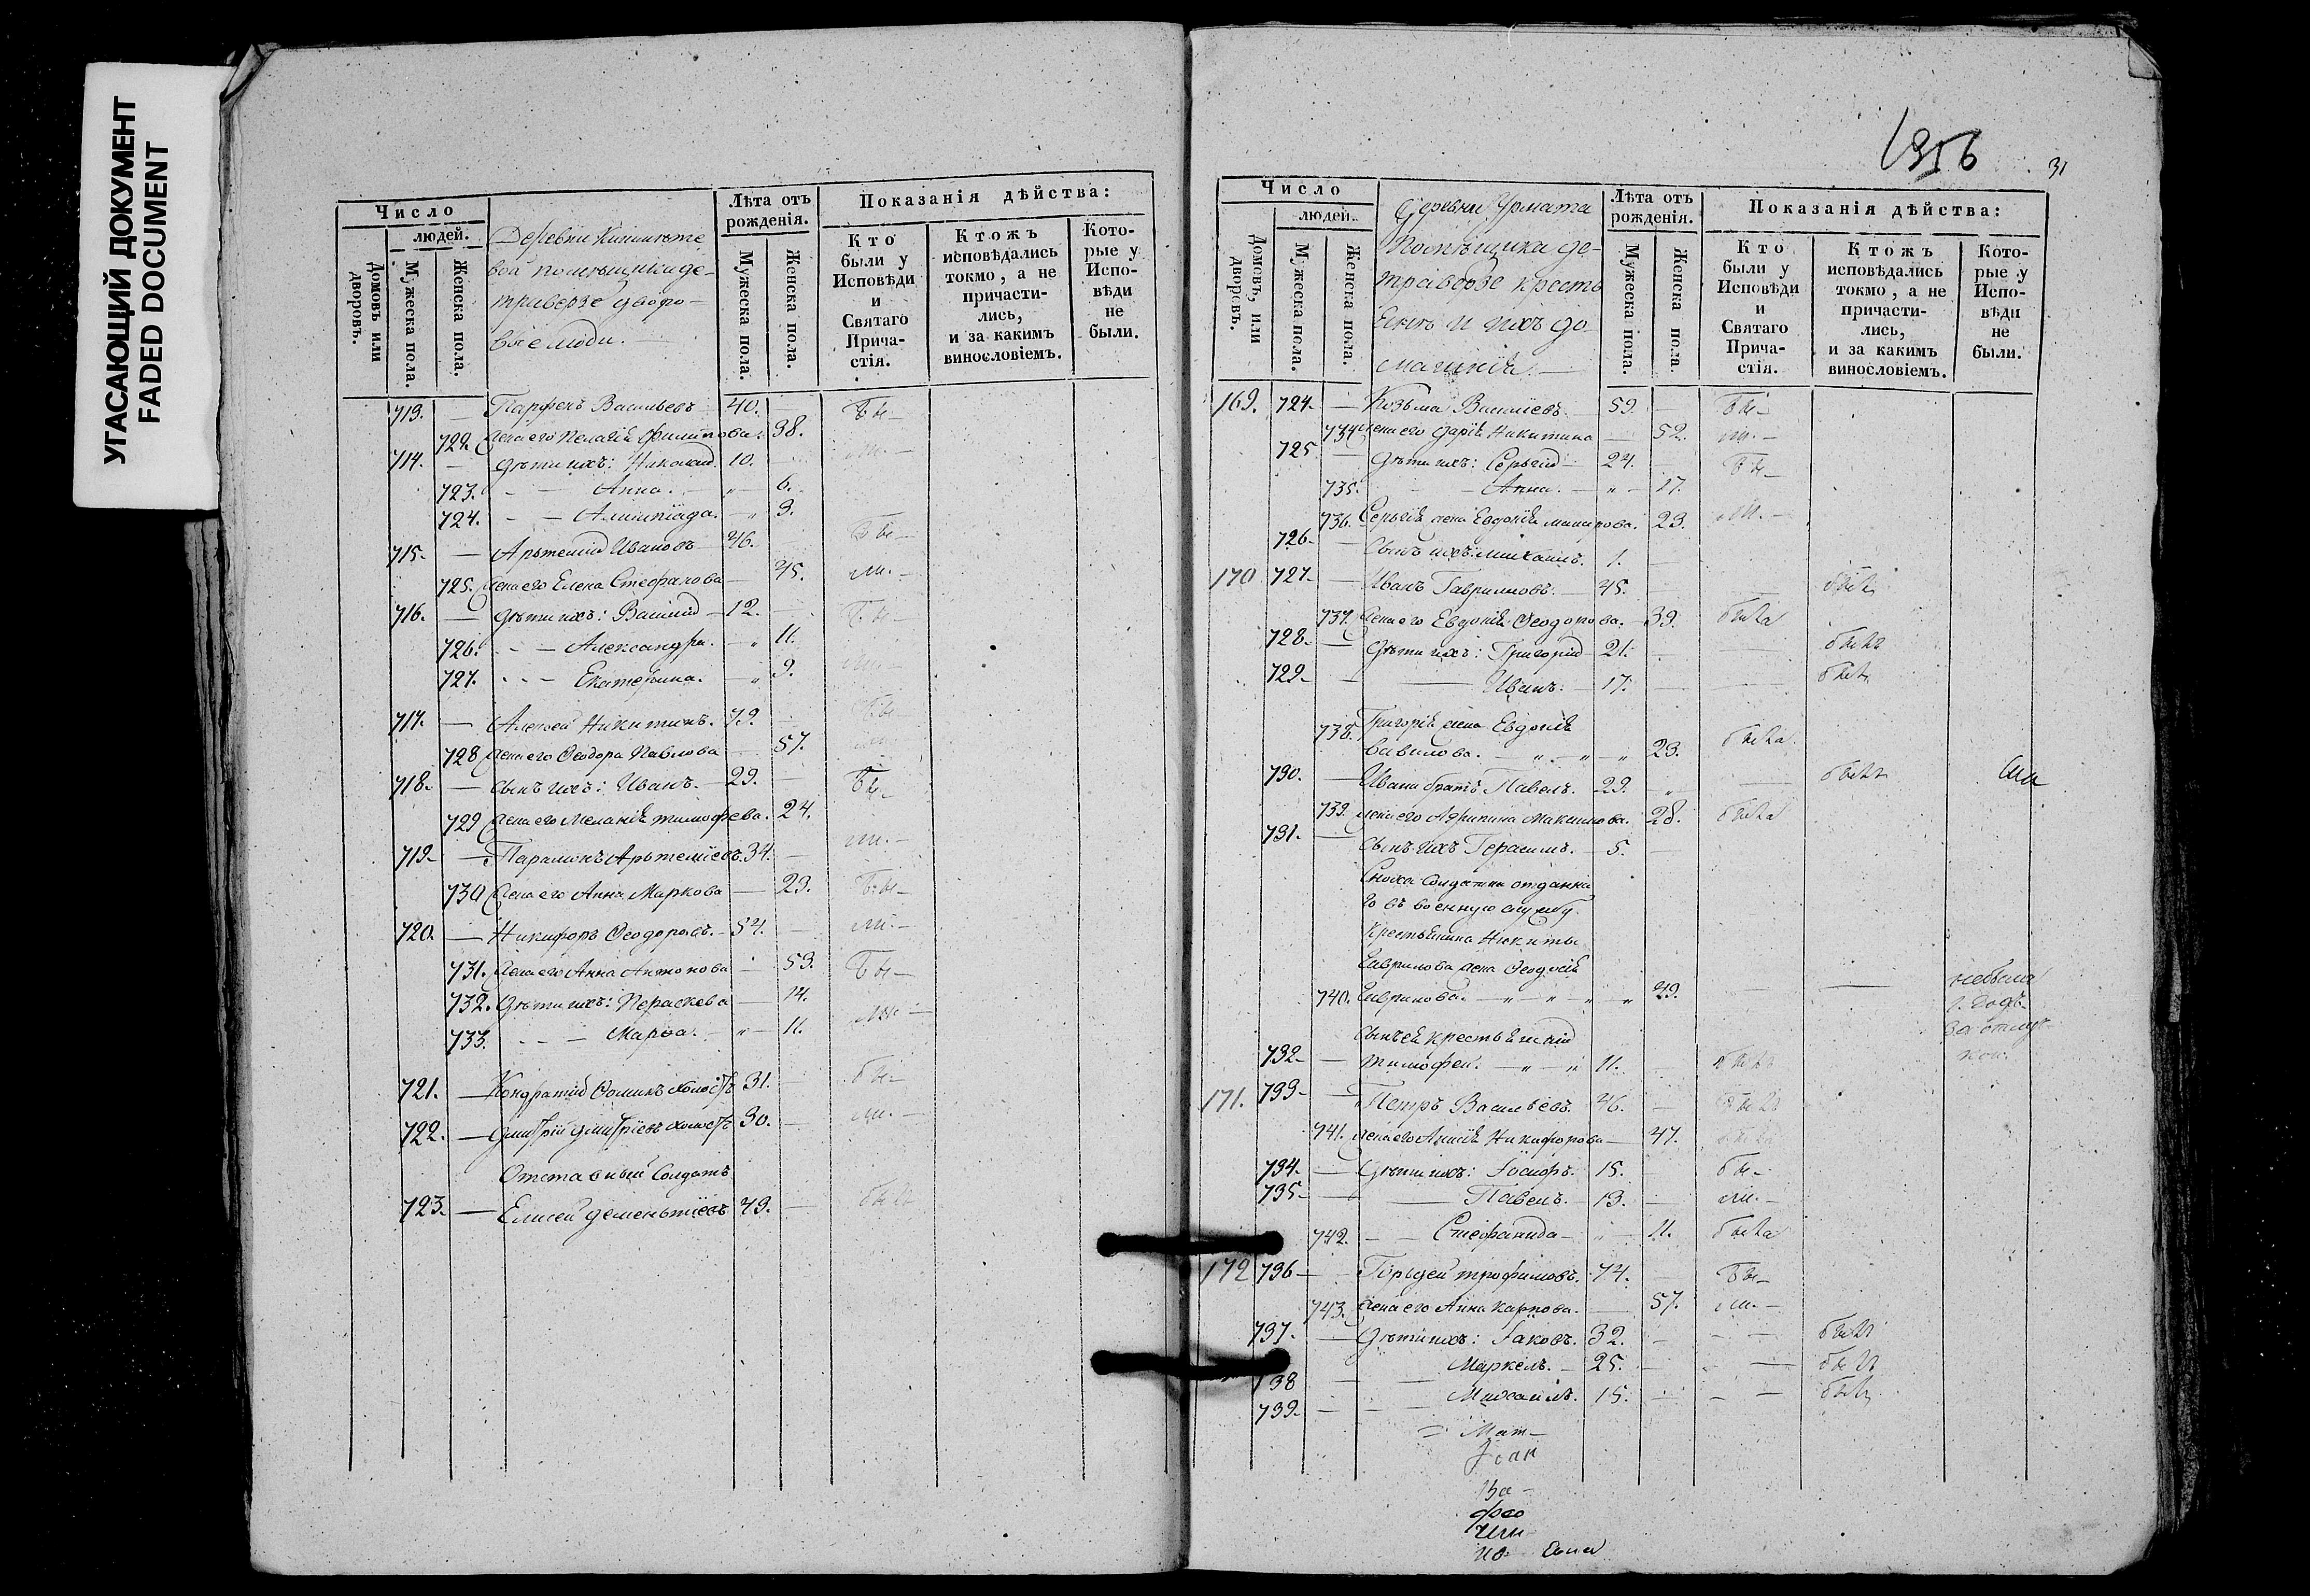 УГАСАЮЩИЙ ДОКУМЕНТ
FADED DOCUMENT
Число
людей.
Домовъ или дворовъ.
Мужеска пола.
Женска пола.
Деревни
вой помѣщика де-
траверзе дворо-
вые люди.
Лѣта отъ рожденія.
Мужеска пола.
Женска пола.
Показанія дѣйства:
Кто были у Исповѣди и Святаго Прича-стія.
Ктожъ исповѣдались токмо, а не причасти-лись, и за какимъ винословіемъ.
Кото-рые у Испо-вѣди не были.
713. — Парфенъ Васильевъ 40. — Бы-
722 жена его Пелагія Филипова. 38. ли. —
714. — дѣти ихъ: Николай. 10. —
723. - — Анна. — „ — 6.
724. - — Алимпіада. — „ 3.
715. — Артемій Ивановъ 46. — Бы-
725. жена его Елена Стефанова — 45. ли. —
716. — дѣти ихъ: Василій — 12. — Бы-
726. - - — Александра. — „ 11.
727. - - - Екатерина. — „ 9. ли.
717. — Алексей Никитинъ. 79. — Бы-
728 жена его Феодора Павлова — 57. ли.
718. — сынъ ихъ: Иванъ. — 29. — Бы-
729 жена его Меланія Тимофева. 24. ли. —
719. — Парамонъ Артеміевъ. 34. —
730 жена его Анна Маркова — 23. Бы-
720. — Никифоръ Феодоровъ. — 54. — ли. —
731. жена его Анна Антонова — 53. Бы-
732. дѣти ихъ: Параскева — 14. ли —
733. - - — Марѳа. — „ — 11.
721. — Кондратій Фоминъ холостъ 31. — бы-
722. — Дмитрій Дмитріевъ холостъ 30. — ли. —
Отставный Солдатъ
723. — Елисей Деменьтіевъ 49. — былъ
1356
31
Число
людей.
Домовъ, или дворовъ.
Мужеска пола.
Женска пола.
Деревни Урмата
помѣщика де-
траверзе кресть
яне и ихъ до
машнія. —
Лѣта отъ рожденія.
Мужеска пола.
Женска пола.
Показанія дѣйства:
Кто были у Исповѣди и Святаго Прича-стія.
Ктожъ исповѣдались токмо, а не причасти-лись, и за какимъ винословіемъ.
Кото-рые у Испо-вѣди не были.
169. 724. — Козьма Василіевъ. 59. — Бы-
734 жена его Дарія Никитина — 52. ли. —
725 — дѣти ихъ: Сергій — 24. — Бы-
735. - — Анна. — „ — 17.
736. Сергія жена Евдокія. 23. ли. —
726. — сынъ ихъ Михаилъ. 1. —
170 727. — Иванъ Гавриловъ. — 45. — былъ
737. жена его Евдокія Феодорова. — 39. была
728. — дѣти ихъ: Григорій 21. — былъ
729. — Иванъ. — 17. — былъ
738. Григорія жена Евдокія
Вавилова. — „ — „ — „ 23. была
730. — Ивана братъ Павелъ. 29. — былъ
739. жена его Агрипина Максимова. 28. была
731. — сынъ ихъ Герасимъ. — 5. —
Сноха солдатка отданна
го въ военную службу
крестьянина Никиты
Гаврилова жена Феодосія
740. Гаврилова. — „ — „ — „ 49. — не была
1. годъ
за отлуч-
кою.
сынъ ея крестьянскій
732. — Тимофей. — „ — „ 11. — былъ
171. 733. — Петръ Васильевъ. 46. — былъ
741. жена его Никифорова — 47. была
734. — дѣти ихъ: Іосифъ. 15. — бы-
735. — Павелъ. — 13. — ли. —
742. - — Стефанида — — 11. была
172 736 — Гордей Трофимовъ. 74. — Бы-
743. жена его Анна Карпова. — 57. ли —
737. — дѣти ихъ: Іаковъ. 32. — былъ
738 — Маркелъ. — 25. — былъ
739. — Михаилъ. 15. — былъ
Мат —